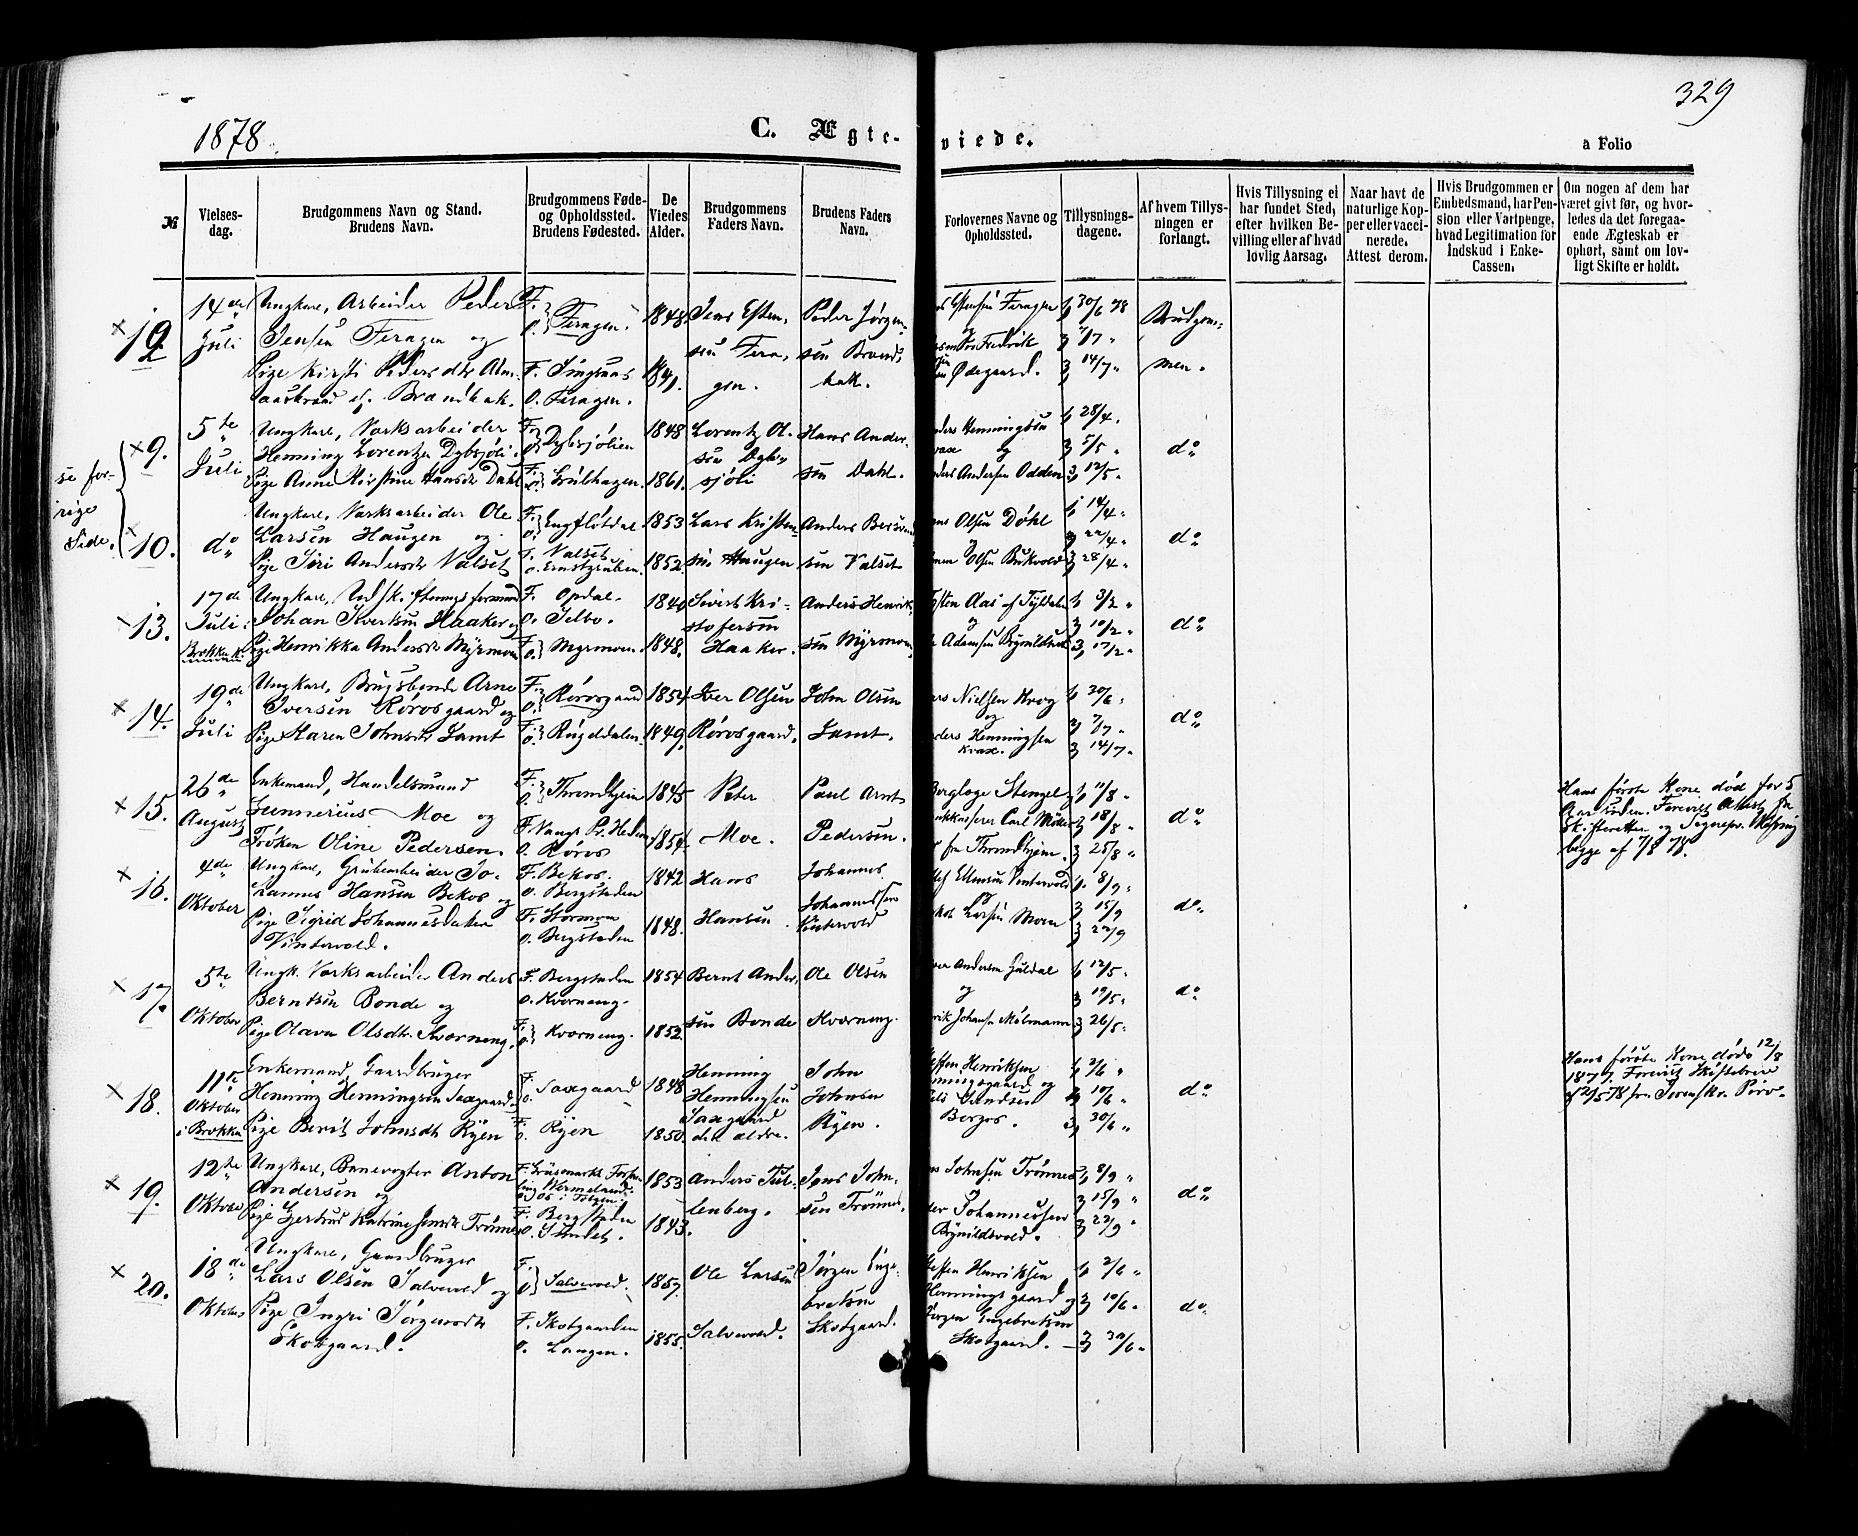 329
1878.
C. Ægte-
viede.
a Folio
№
Vielses-
dag.
Brudgommens Navn og Stand.
Brudens Navn.
Brudgommens Føde-
og Opholdssted.
Brudens Fødested.
De
Viedes
Alder.
Brudgommens
Faders Navn.
Brudens Faders
Navn.
Forlovernes Navne og
Opholdssted.
Tillysnings-
dagene.
Af hvem Tillys-
ningen er
forlangt.
Hvis Tillysning ei
har fundet Sted,
efter hvilken Be-
villing eller af hvad
lovlig Aarsag.
Naar havt de
naturlige Kop-
per eller vacci-
nerede.
Attest derom.
Hvis Brudgommen er
Embedsmand, har Pen-
sion eller Vartpenge,
hvad Legitimation for
Indskud i Enke-
Cassen.
Om nogen af dem har
været givt før, og hvor-
ledes da det foregaa-
ende Ægteskab er
ophørt, samt om lov-
ligt Skifte er holdt.
12
14de
Juli
Ungkarl, Arbeider Peder
Jensen Feragen og
Pige Kirsti Pedersdtr
Brændbak.
F.
O.
Feragen.
F.
O. Feragen.
1848.
1841.
Jens Esten-
sen Fera-
gen.
Peder Jørgen-
sen Brænd-
bak.
Estensen Feragen
og
Fredrik
Ødegaard.
1, 30/6 78
2, 7/7 "
3, 14/7 "
Brudgom-
men.
se for-
rige
Side.
9.
5te
Juli
Ungkarl, Værksarbeider
Henning Lorentzen Dybsjøli
Pige Anne Kirstine Hansdtr Dahl
F.
O.
Dybsjølien
F.
O.
Grubhagen.
1848
1861.
Lorentz Ol-
sen Dyb-
sjøli
Hans Ander-
sen Dahl.
Henningsen
Krax og
Andersen Odden
1, 28/4.
2, 5/5 "
3, 12/5.
do
10.
do
Ungkarl, Værksarbeider Ole
Larsen Haugen og
Pige Siri Andersdtr Valset
F.
O.
F. Valset
O.
1853
1852.
Lars Kristen-
sen Haugen
Anders
sen Valset
Olsen Døhl
og
Olsen Bukvold
1, 14/4.
2, 22/4.
3, 28/4 "
do
13.
17de
Juli
Brekken K.
Ungkarl,
Johan Sivertsen Haaker og
Pige Henrikka Andersdtr Myrmoen
F. Opdal.
O. Selbo.
F.
O.
Myrmoen.
1848.
Sivert Kri-
stofersen
Haaker.
Anders Henrik-
sen Myrmoen
Aas af Tyldalen
og
Adamsen Brynildsvold
1, 3/2 "
2, 10/2 "
3, 17/2 "
do
14.
19de
Juli
Ungkarl, Brugsbonde Arne
Iversen Rørosgaard og
Pige Karen Johnsdtr Lamt
F.
O.
Rørosgaard
F.
O.
Rugldalen
1854
1849.
Iver Olsen
Rørosgaard.
John Olsen
Lamt.
Nielsen Krog
og
Henningsen
Krax.
1, 30/6.
2, 7/7 "
3, 14/7 "
do
15.
26de
August
Enkemand, Handelsmand
Gunnerius Moe og
Frøken Oline Pedersen.
F.
O.
Throndhjem
F. Vang Pr. Hedem.
O. Røros
1845
1854.
Peter
Moe.
Paul Arnt
Pedersen.
Berglæge Stenzel og
Carl Møller
fra Throndhjem.
1, 11/8 "
2, 18/8 "
3, 25/8 "
do
Hans første Kone død for 5
Aar siden. Forevist Attest fra
Skifteretten og
begge af 7/8 78.
16.
4de
Oktober
Ungkarl, Grubearbeider Jo-
hannes Hansen Bekos og
Pige Sigrid Johannesdatter
Vintervold.
F. Bekos.
O. Bergstaden
F. Stormoen
O. Bergstaden
1842
1848.
Hans
Hansen
Johannes
Johannessen
Vintervold
Ellensen Vintervold
og
Larsen Moen
1, 8/9.
2, 15/9
3, 22/9
do
17.
5te
Oktober
Ungk. Værksarbeider Anders
Berntsen Bonde og
Pige Olava Olsdtr. Kværneng.
F. Bergstaden
O. Kværneng.
F.
O.
Kværneng.
1854
1852.
Bernt Ander-
sen Bonde
Ole Olsen
Kværneng.
Andersen Guldal
og
Johansen Mølmann
1, 12/5.
2, 19/5.
3, 26/5.
do
18.
11te
Oktober
i Brekken
Enkemand, Gaardbruger
Henning Henningsen Saxgaard
Pige Berit Johnsdtr Ryen
F.
O.
Saxgaard
F.
O.
Ryen
1848
1850.
Henning
Henningsen
Saxgaard
den ældre.
John
Johnsen
Ryen.
Steffen Henriksen
Henningsgaard og
Berges.
1, 2/6 "
2, 10/6 "
3, 30/6 "
do
Hans første Kone døde 12/8
1877. Forevist Skiftebrev
af 21/5 78 fra Sorenskr.
19.
12te
Oktober
Ungkarl, Banevogter Anton
Andersen og
Pige Gjertrud Katrine Jensdtr Trønnes
F. Grusmarks
Wermeland.
O. Os i Tolgen.
F. Bergstaden
O. Sundet.
1853
1843.
Anders Ful-
lenberg.
Jens John-
sen Trønnes.
Johnsen Trønnes
og
Johannessen
Brynildsvold.
1, 8/9 "
2, 15/9 "
3, 22/9 "
do
20.
18de
Oktober
Ungkarl, Gaardbruger
Lars Olsen Galvold og
Pige Ingri Jørgensdtr
Skotgaard.
F.
O.
F. Skotgaarden
O. Langen.
1857.
1855.
Ole Larsen
Jørgen Enge-
bretsen
Skotgaard.
Steffen Henriksen
Henningsgaard og
Jørgen Engebretsen
Skotgaard.
1, 2/6 "
2, 10/6 "
3, 30/6 "
do